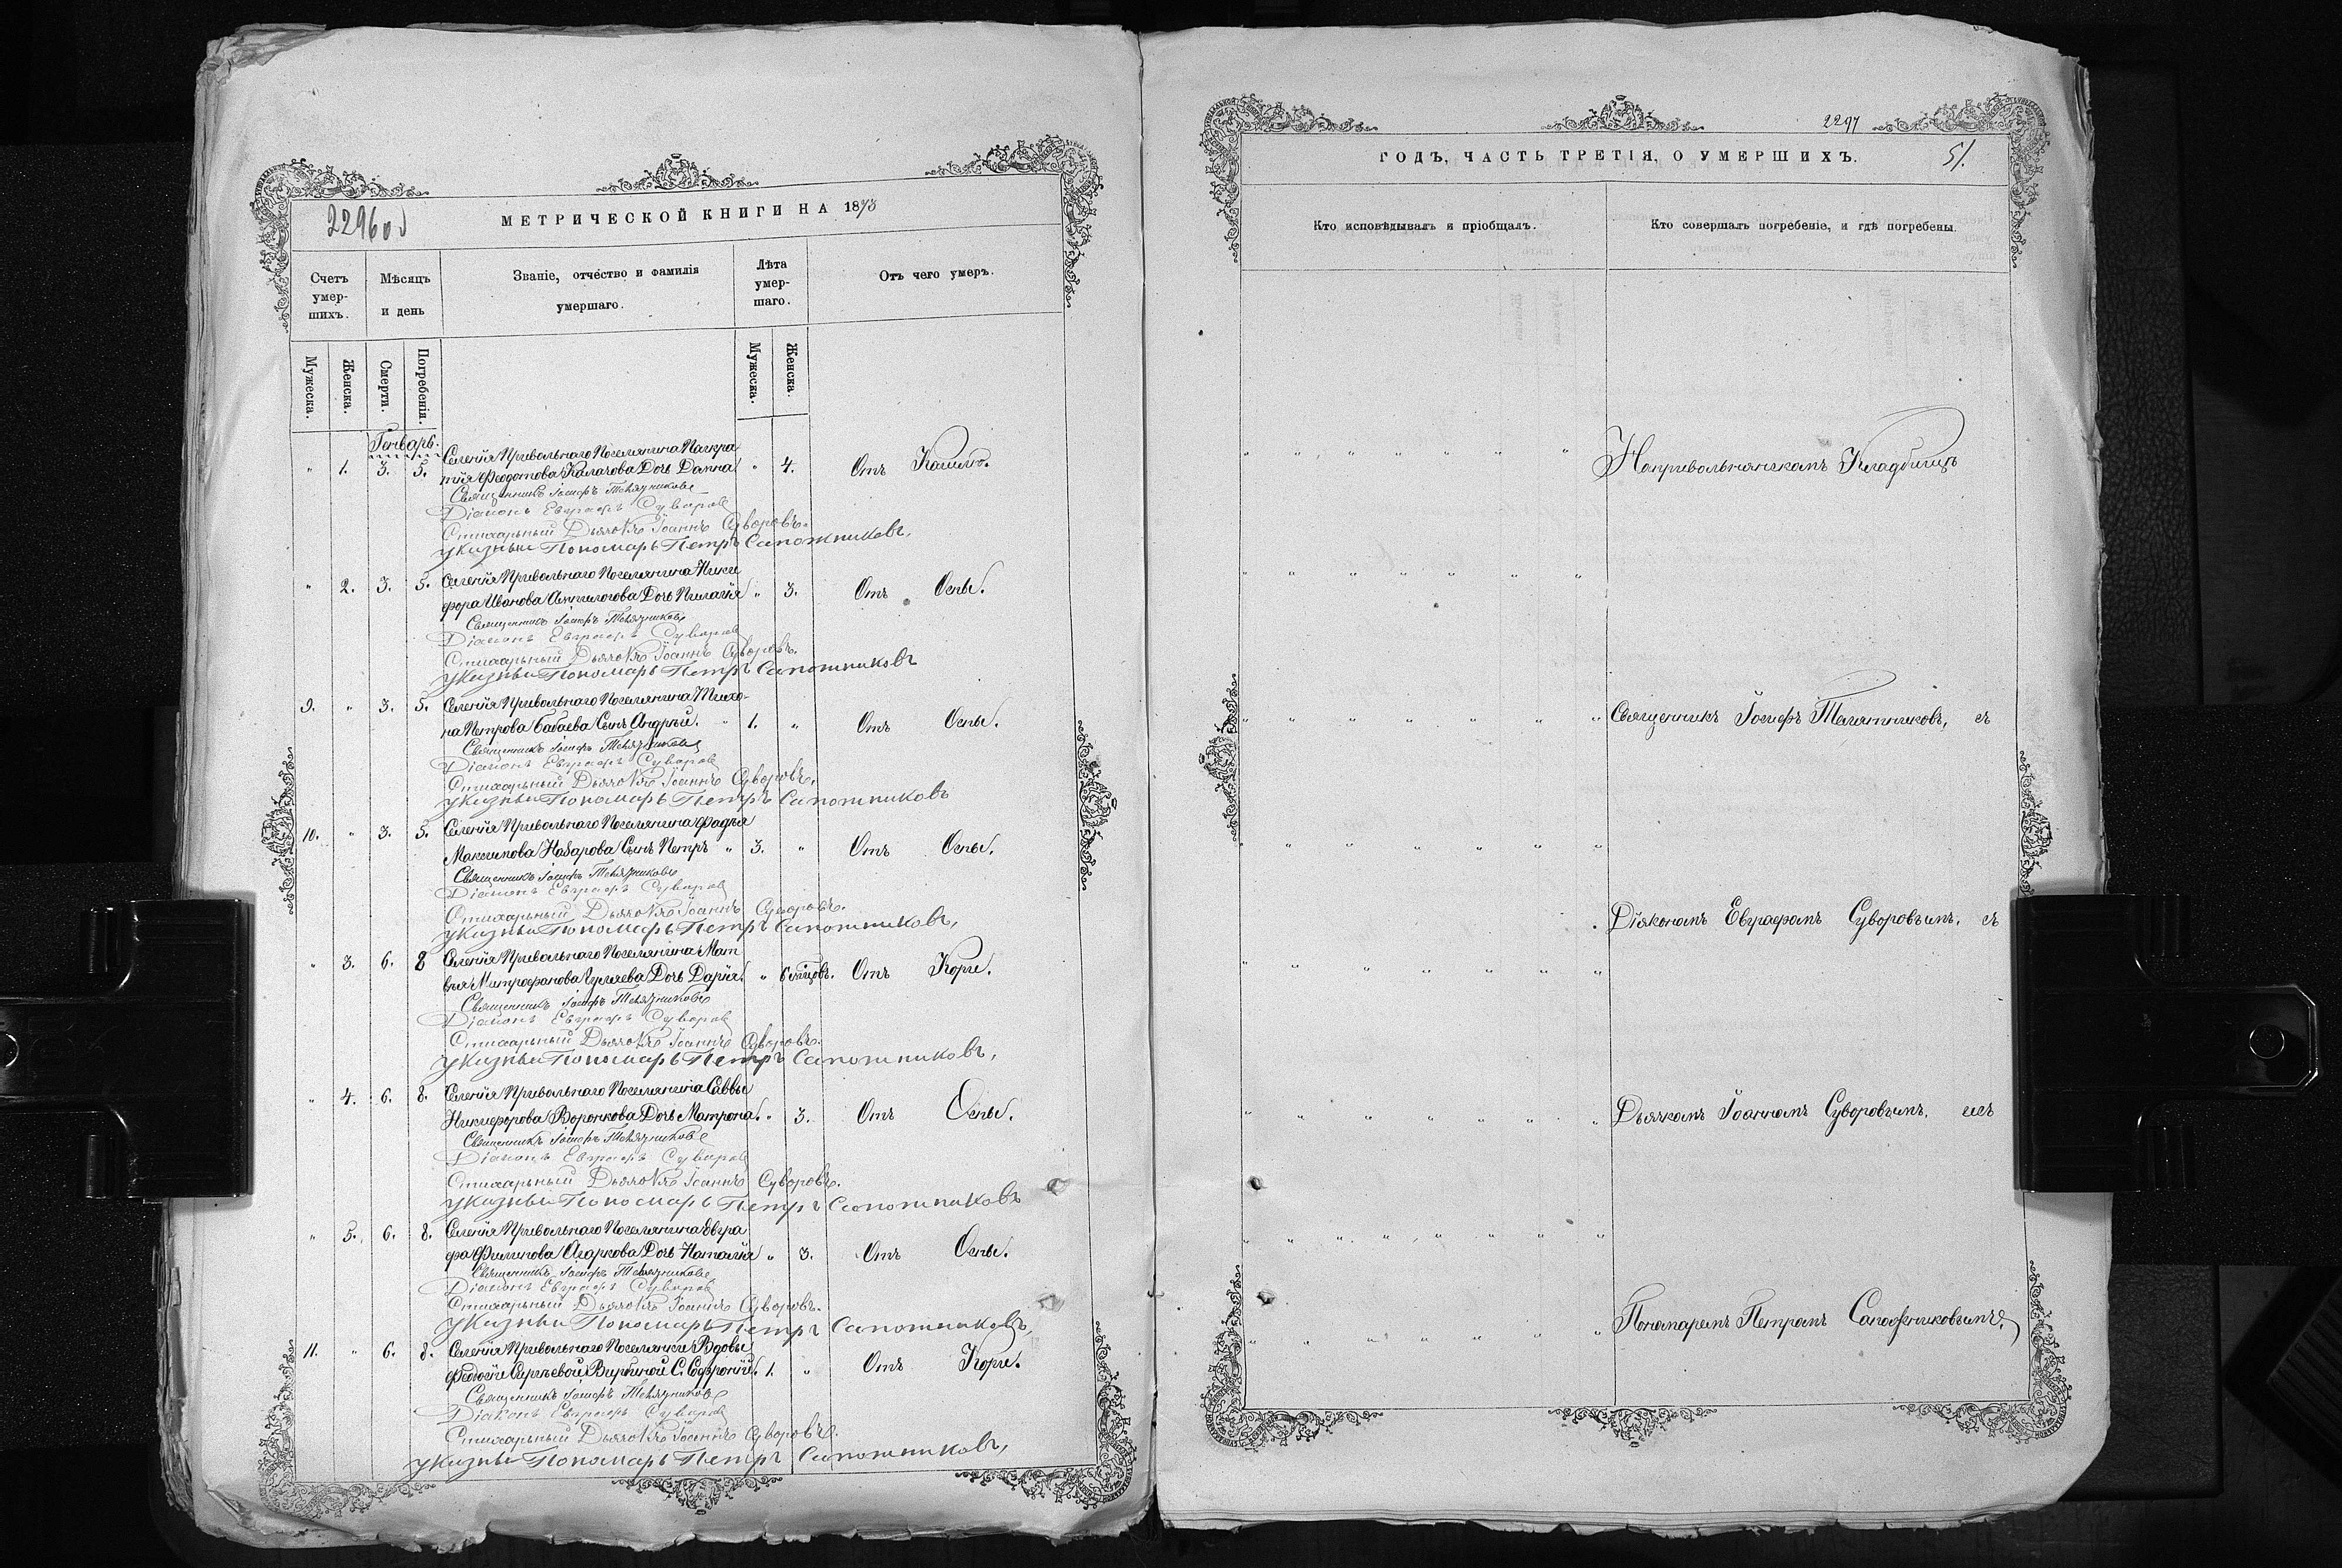 2296 об
МЕТРИЧЕСКОЙ КНИГИ НА 1873
Счетъ умершихъ.
Мѣсяцъ и день
Званіе, отчество и фамилія умершаго.
Лѣта умершаго.
Отъ чего умеръ.
Мужеска.
Женска.
Смерти.
Погребенія.
Мужеска.
Женска.
Генварь.
" 1. 3. 5. Селенія Привольнаго Поселянина Панкра
тія Федотова Калачова Дочь Домна " 4. Отъ Кашлю.
Священникъ Іосифъ Телятниковъ
Діаконъ Евграфъ Суворов
Стихарный Дьячокъ Іоаннъ Суворовъ.
указный Пономарь Петръ Сапожниковъ,
" 2. 3. 5. Селенія Привольнаго Поселянина Ники
фора Иванова Дочь Пелагія " 3. Отъ Оспы.
Священникъ Іосифъ Телятниковъ
Діаконъ Евграфъ Суворов
Стихарный Дьячокъ Іоаннъ Суворовъ.
указный Пономарь Петръ Сапожниковъ
9. " 3. 5. Селенія Привольнаго Поселянина Тихо-
на Петрова Бабаева Сынъ Андрей. " 1. " Отъ Оспы.
Священникъ Іосифъ Телятниковъ
Діаконъ Евграфъ Суворов
Стихарный Дьячокъ Іоаннъ Суворовъ.
указный Пономарь Петръ Сапожниковъ
10. " 3. 5. Селенія Привольнаго Поселянина Фадея
Максимова Назарова Сынъ Петръ " 3. " Отъ Оспы.
Священникъ Іосифъ Телятниковъ
Діаконъ Евграфъ Суворов
Стихарный Дьячокъ Іоаннъ Суворовъ.
указный Пономарь Петръ Сапожниковъ,
" 3. 6. 8 Селенія Привольнаго Поселянина Мат
вея Митрофанова Дочь Дарія. " 6 мѣсяцовъ. Отъ Кори.
Священникъ Іосифъ Телятниковъ
Діаконъ Евграфъ Суворов
Стихарный Дьячокъ Іоаннъ Суворовъ.
указный Пономарь Петръ Сапожниковъ,
" 4. 6. 8. Селенія Привольнаго Поселянина Саввы
Никифорова Воронкова Дочь Матрона. " 3. Отъ Оспы.
Священникъ Іосифъ Телятниковъ
Діаконъ Евграфъ Суворов
Стихарный Дьячокъ Іоаннъ Суворовъ.
указный Пономарь Петръ Сапожниковъ
" 5. 6. 8. Селенія Привольнаго Поселянина Евгра
фа Филипова Агаркова Дочь Наталія " 3. Отъ Оспы.
Священникъ Іосифъ Телятниковъ
Діаконъ Евграфъ Суворов
Стихарный Дьячокъ Іоаннъ Суворовъ.
указный Пономарь Петръ Сапожниковъ,
11. " 6. 8. Селенія Привольнаго Поселянки Вдовы
Федосіи Сергѣевой С. Софроній. 1. " Отъ Кори.
Священникъ Іосифъ Телятниковъ
Діаконъ Евграфъ Суворов
Стихарный Дьячокъ Іоаннъ Суворовъ.
указный Пономарь Петръ Сапожниковъ,
2297
ГОДЪ, ЧАСТЬ ТРЕТІЯ, О УМЕРШИХЪ.
51.
Кто исповѣдывалъ и пріобщалъ.
Кто совершалъ погребеніе, и гдѣ погребены.
Напривольнянскомъ Кладбищѣ
Священникъ Іосифъ Телятниковъ, съ
Діякономъ Евграфомъ Суворовымъ, съ
Дьячкомъ Іоанномъ Суворовымъ, исъ
Пономаремъ Петромъ Сапожниковымъ.